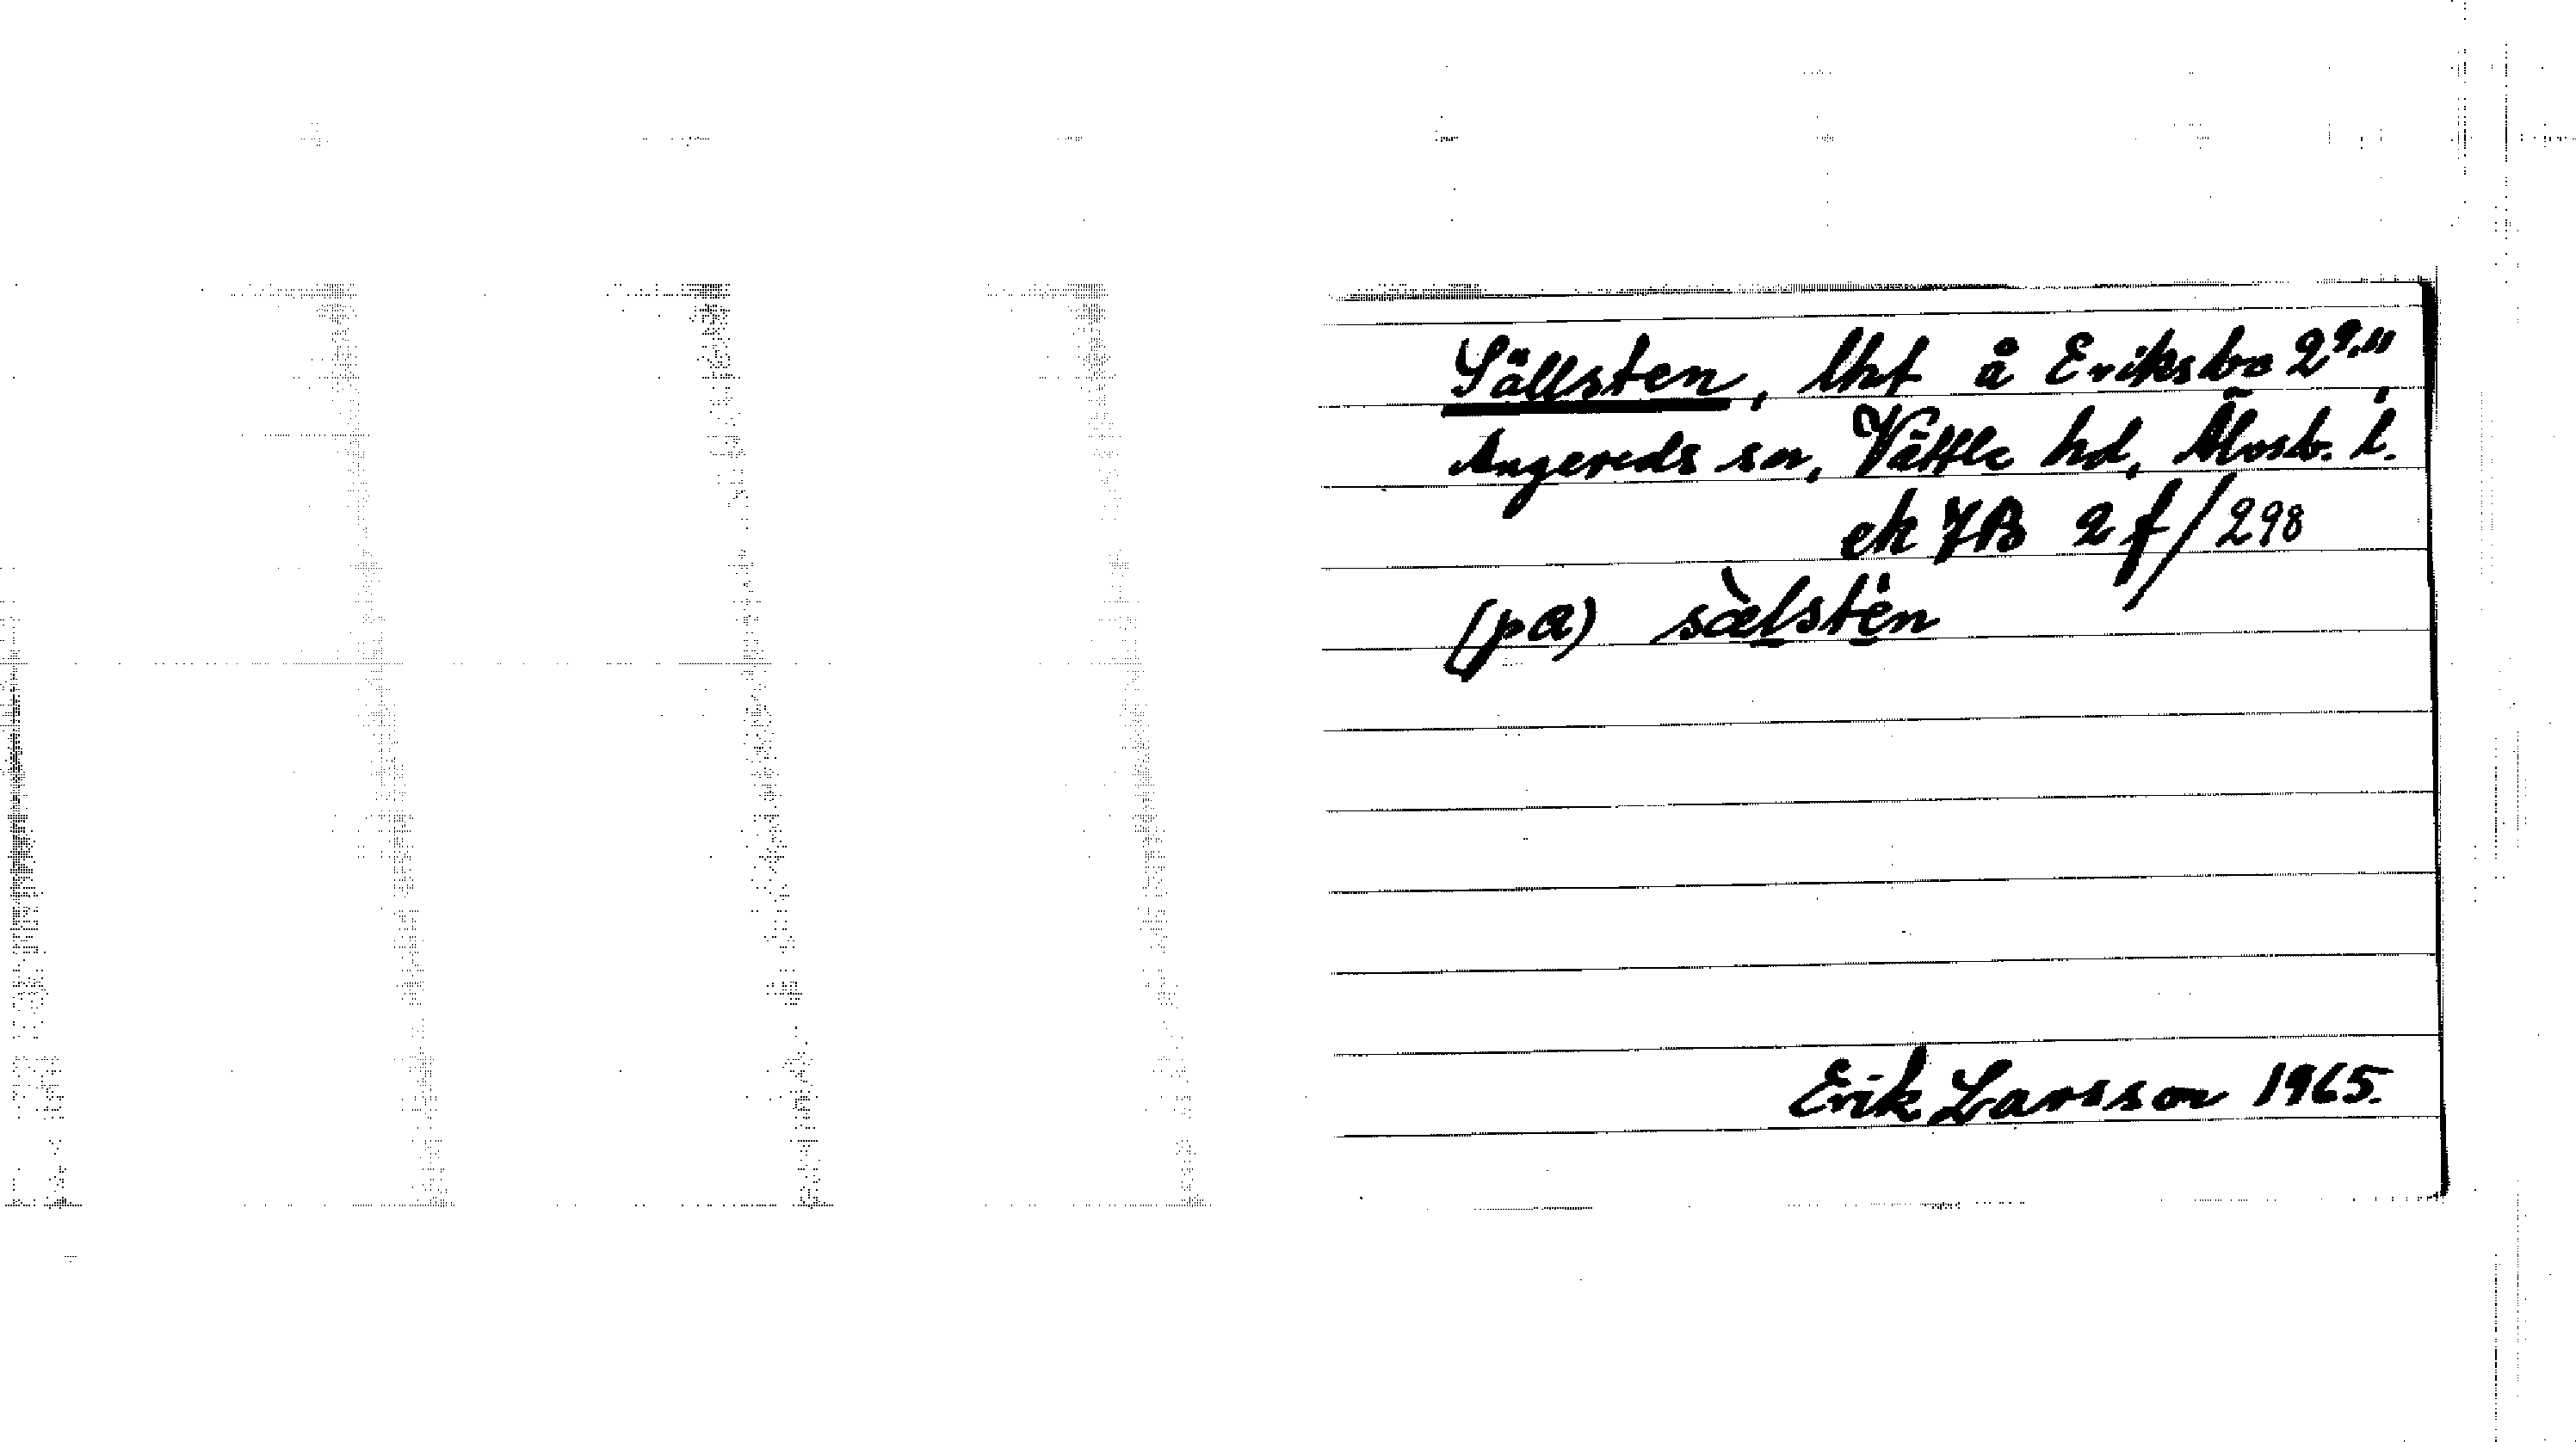 Sällsten, lht å Eriksbo 2⁹·¹¹,
Angereds sn, Vättle hd, Älvsb. l.
ek 7B 2f/298
(pa) sὰlstèn
Erik Larsson 1965.